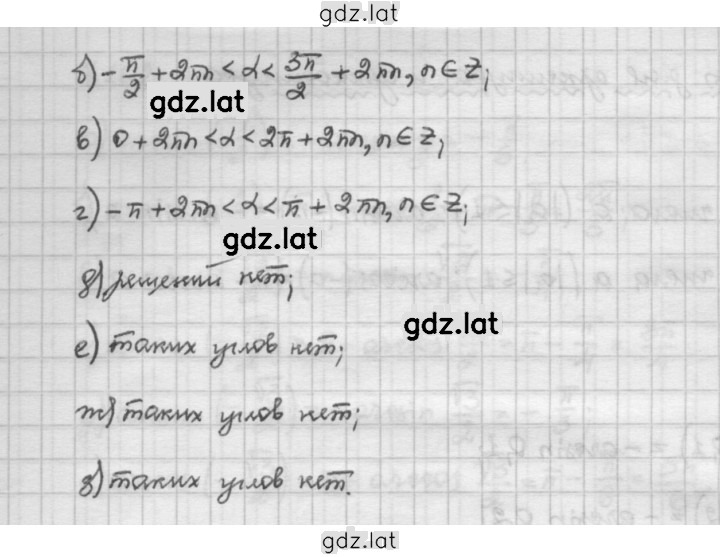 gdz.lat
б) -π/2 + 2πn < α < 3π/2 + 2πn, n ∈ Z;
gdz.lat
в) 0 + 2πn < α < 2π + 2πn, n ∈ Z;
г) -π + 2πn < α < π + 2πn, n ∈ Z;
gdz.lat
д) решений нет;
gdz.lat
е) таких углов нет;
ж) таких углов нет;
з) таких углов нет.
gdz.lat